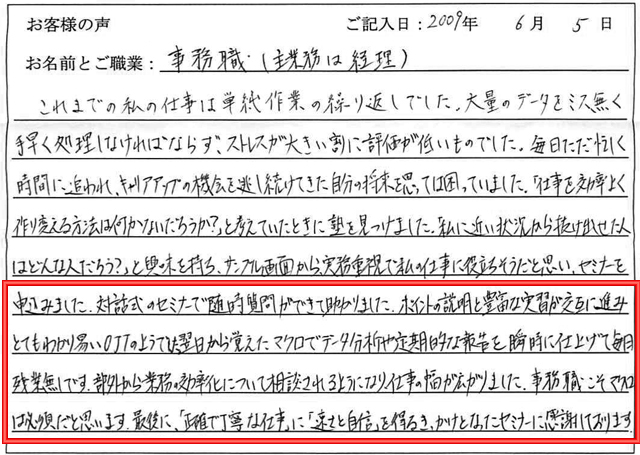 お客様の声 ご記入日：2009年 6月 5日
お名前とご職業：事務職（主業務は経理）
これまでの私の仕事は単純作業の繰り返しでした。大量のデータをミス無く
手早く処理しなければならず、ストレスが大きい割に評価が低いものでした。毎日ただ忙しく
時間に追われ、キャリアアップの機会を逃し続けてきた自分の将来を思っては困っていました。「仕事を効率よく
作り変える方法は何かないだろうか？」と考えていたときに塾を見つけました。「私に近い状況から抜け出せた人
はどんな人だろう？」と興味を持ち、サンプル画面から、実務重視で私の仕事に役立ちそうだと思い、セミナーを
申込みました。対話式のセミナーで随時質問ができて助かりました。ポイントの説明と豊富な実習が交互に進み
とてもわかり易いOJTのようでした。翌日から覚えたマクロでデータ分析や定期的な報告を瞬時に仕上げて毎日
残業無しです。部外から業務の効率化について相談されるようになり仕事の幅が広がりました。事務職こそマクロ
は必須だと思います。最後に、「正確で丁寧な仕事」に「速さと自信」を得るき、かけとなったセミナーに感謝しております。